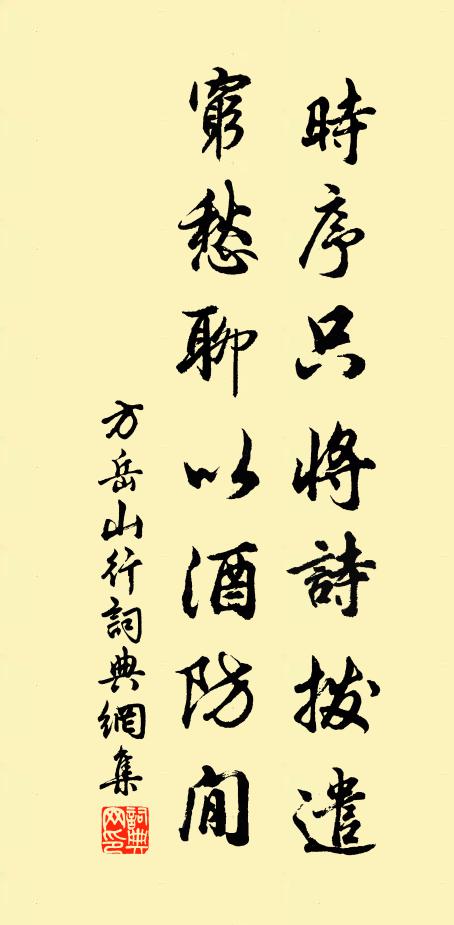 時序只將詩撥遣
窮愁聊以酒防閒
方岳山行詞典網集
詞典网印